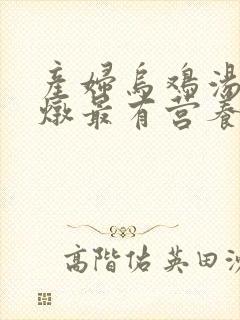 産婦烏鷄湯
燉最有营養
高階佑英田沙